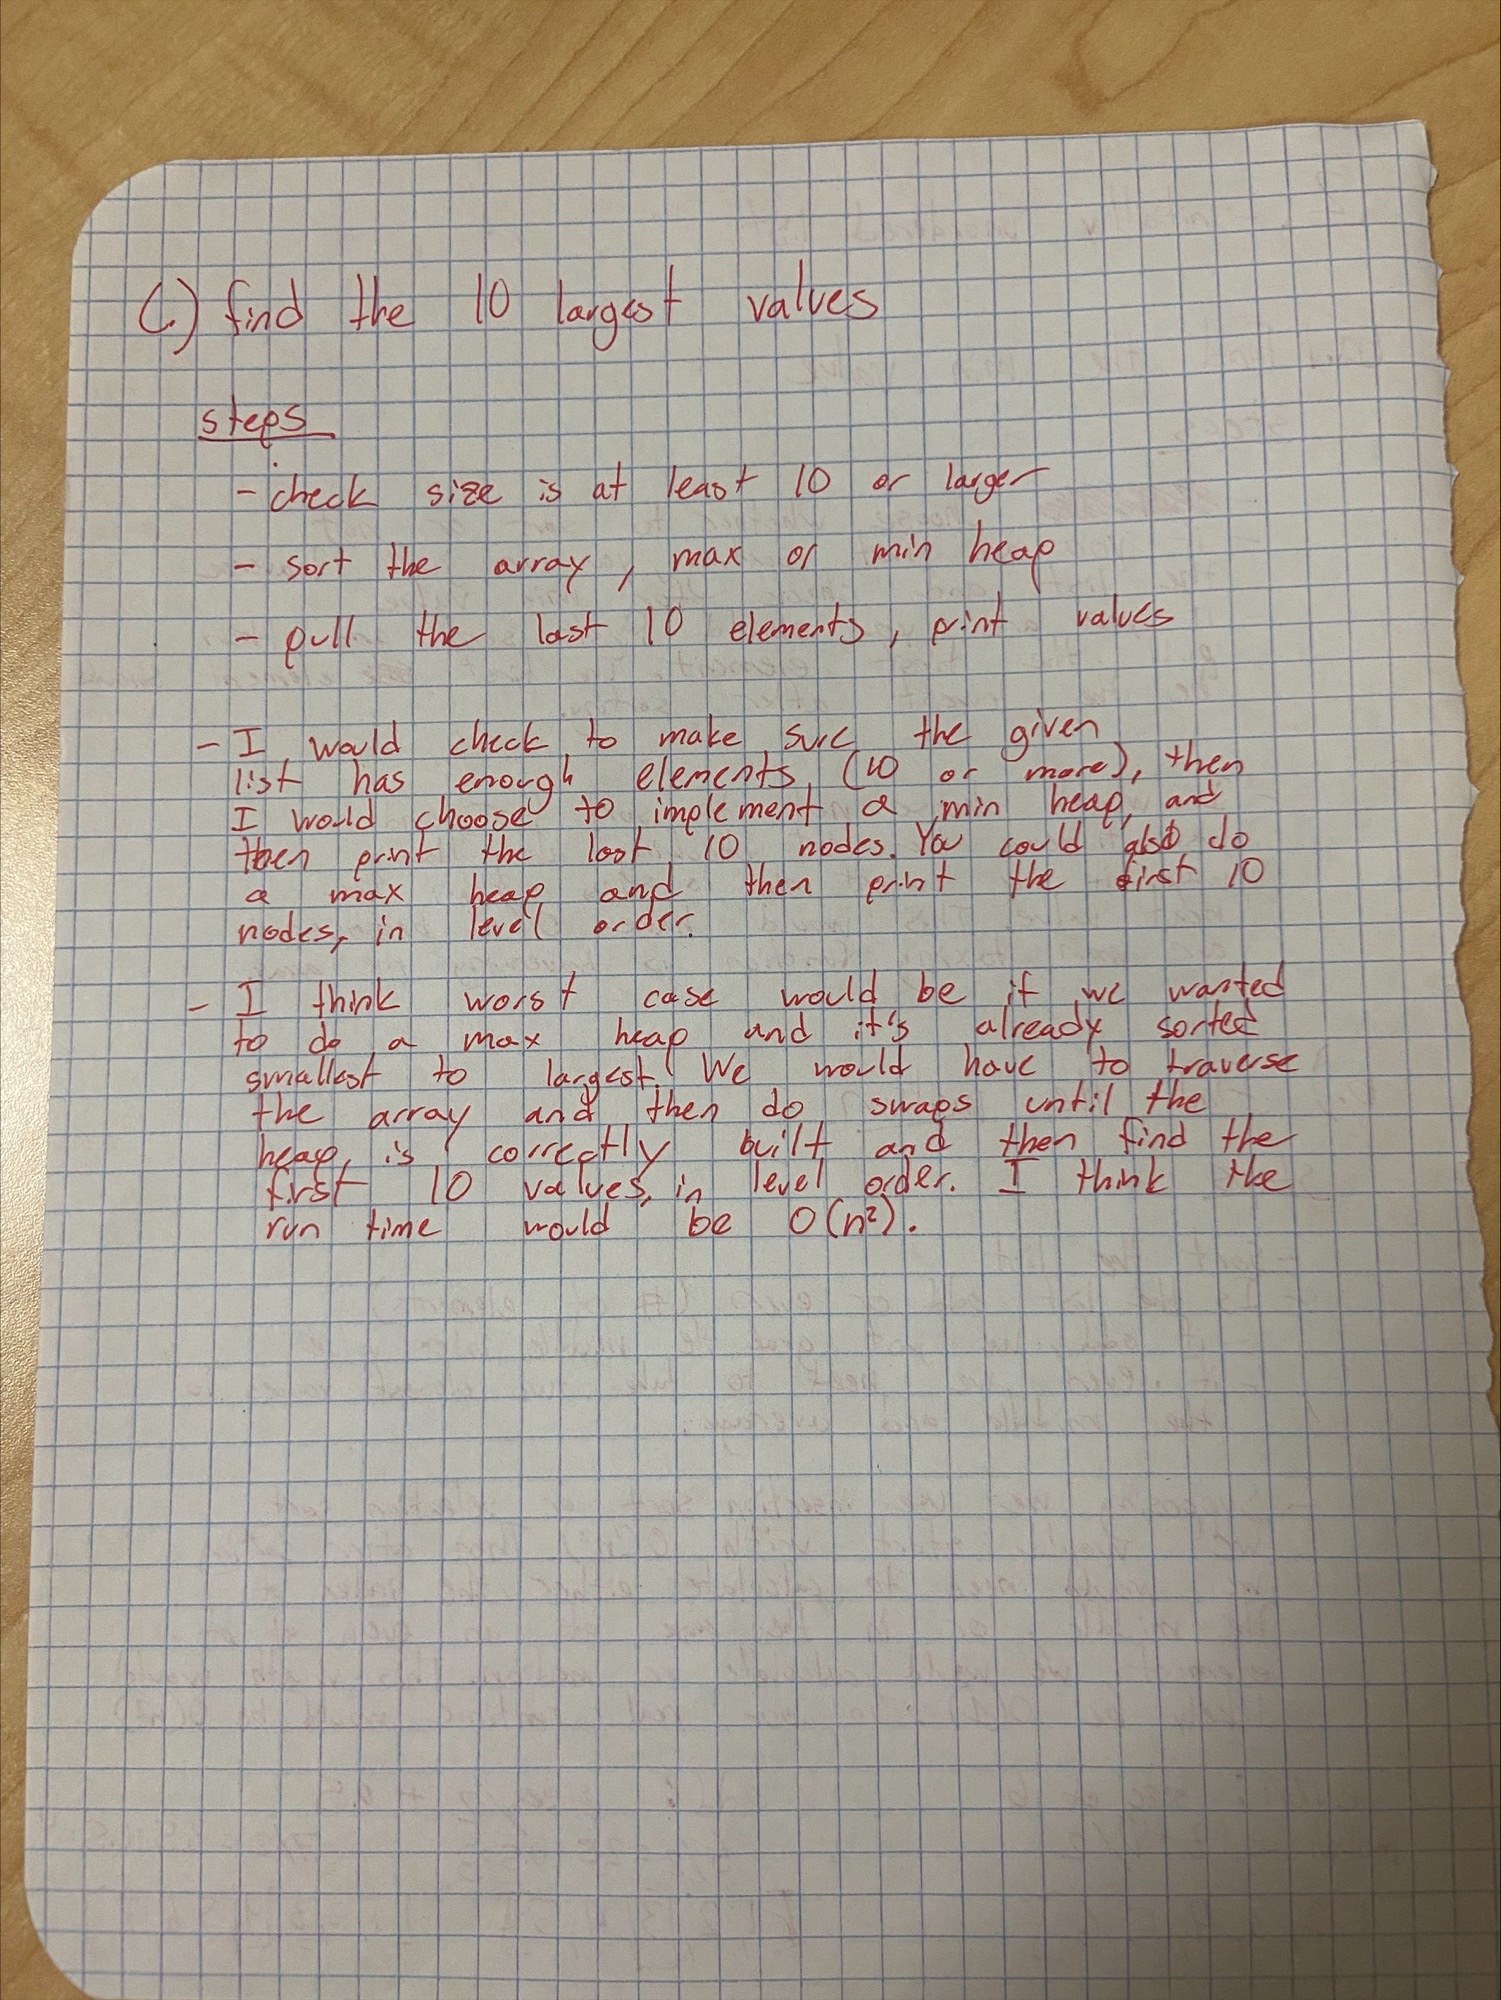 C.) find the 10 largest values
steps
- check size is at least 10 or larger
- sort the array, max or min heap
- pull the last 10 elements, print values
- I would check to make sure the given
list has enough elements (10 or more), then
I would choose to implement a min heap, and
then print the last 10 nodes. You could also do
a max heap and then print the first 10
nodes, in level order.
- I think worst case would be if we wanted
to do a max heap and it's already sorted
smallest to largest. We would have to traverse
the array and then do swaps until the
heap, is correctly built and then find the
first 10 values, in level order. I think the
run time would be O(n²).